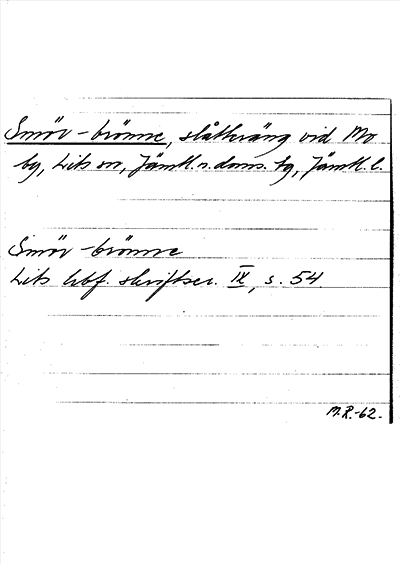 Smör-brönne, slåtteräng vid Mo
by, Lits sn, Jämtl. n. doms. tg, Jämtl. l.
Smör-brönne
Lits hbf. skriftser. IX, s. 54
M.R.-62.